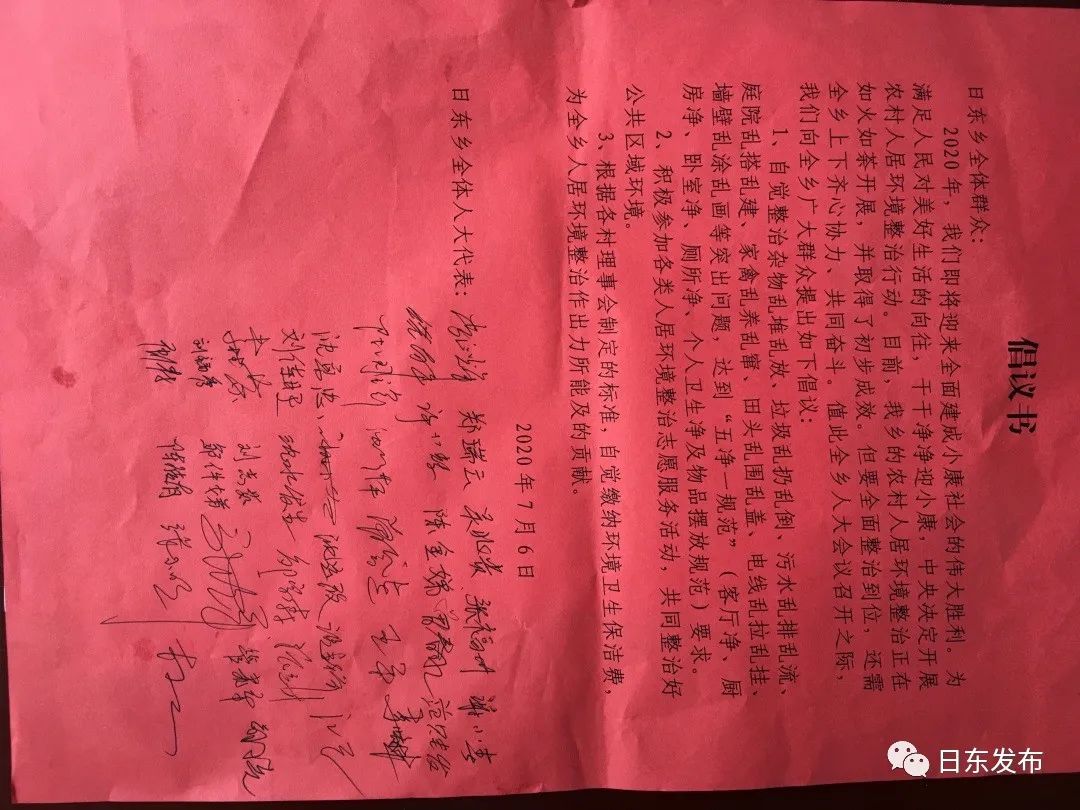 倡议书
日东乡全体群众：
2020年，我们即将迎来全面建成小康社会的伟大胜利。为
满足人民对美好生活的向往，干干净净迎小康，中央决定开展
农村人居环境整治行动。目前，我乡的农村人居环境整治正在
如火如荼开展，并取得了初步成效。但要全面整治到位，还需
全乡上下齐心协力、共同奋斗。值此全乡人大会议召开之际，
我们向全乡广大群众提出如下倡议：
1、自觉整治杂物乱堆乱放、垃圾乱扔乱倒、污水乱排乱流、
庭院乱搭乱建、家禽乱养乱窜、田头乱围乱盖、电线乱拉乱挂、
墙壁乱涂乱画等突出问题，达到“五净一规范”（客厅净、厨
房净、卧室净、厕所净、个人卫生净及物品摆放规范）要求。
2、积极参加各类人居环境整治志愿服务活动，共同整治好
公共区域环境。
3、根据各村理事会制定的标准，自觉缴纳环境卫生保洁费，
为全乡人居环境整治作出力所能及的贡献。
2020年7月6日
日东乡全体人大代表：
郑瑞云
谢小青
陈金娣
王军
刘志荣
日东发布